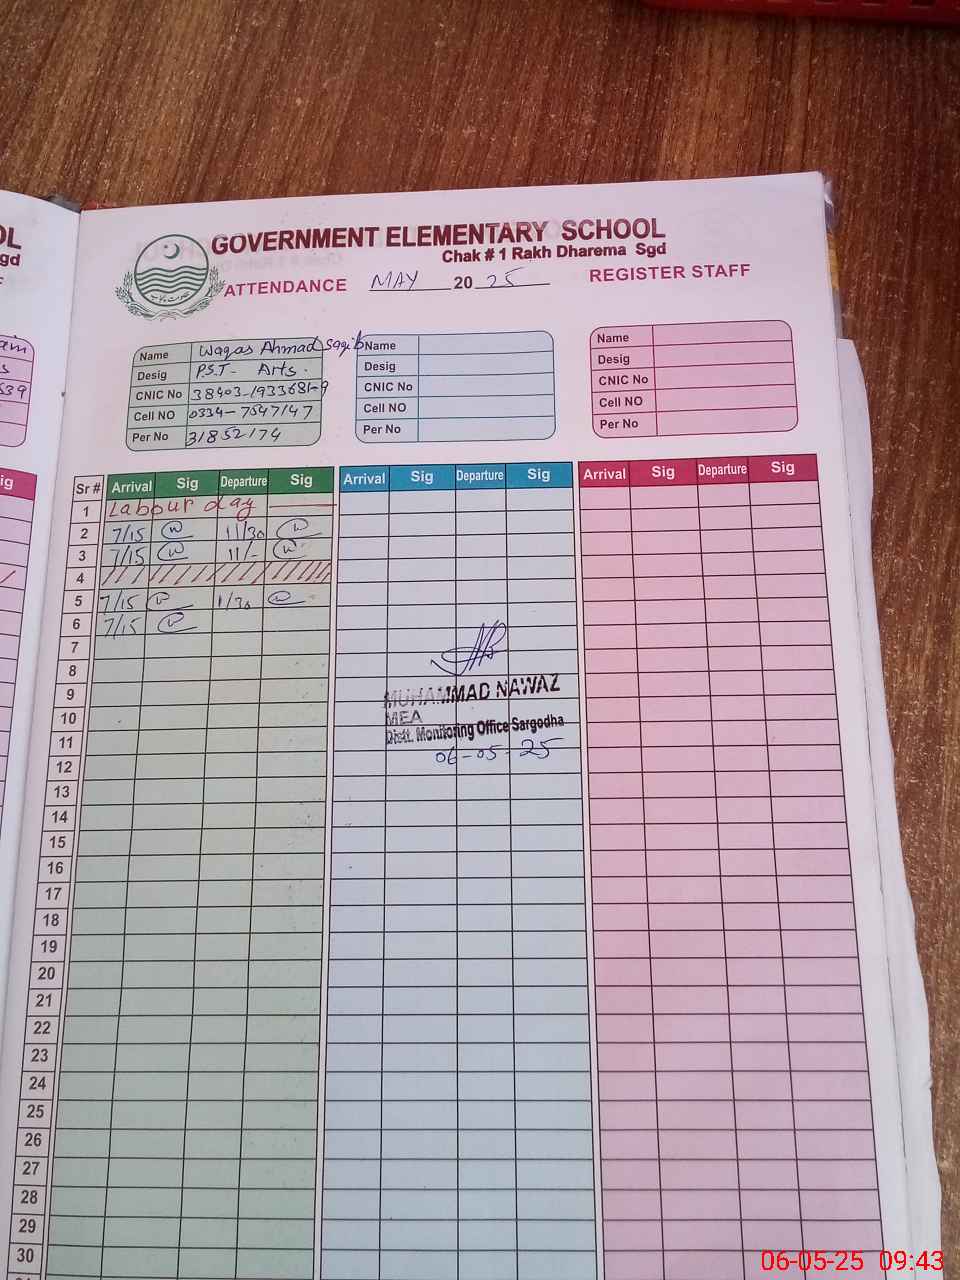 OL
GOVERNMENT ELEMENTARY SCHOOL
gd
Chak # 1 Rakh Dharema Sgd
ATTENDANCE MAY 20 25 REGISTER STAFF
Name Waqas Ahmad Saqib
Desig P.S.T- Arts.
CNIC No 38403-1933681-9
Cell NO 0334-7547147
Per No 31852174
Name
Desig
CNIC No
Cell NO
Per No
Name
Desig
CNIC No
Cell NO
Per No
539
ig
Sr # Arrival Sig Departure Sig Arrival Sig Departure Sig Arrival Sig Departure Sig
1 Labour day
2 7/15 11/30
3 7/15 11/-
4
5 7/15 1/30
6 7/15
7
8
9
10
11
12
13
14
15
16
17
18
19
20
21
22
23
24
25
26
27
28
29
30
MUHAMMAD NAWAZ
MEA
Distt. Monitoring Office Sargodha
06-05-25
06-05-25 09:43